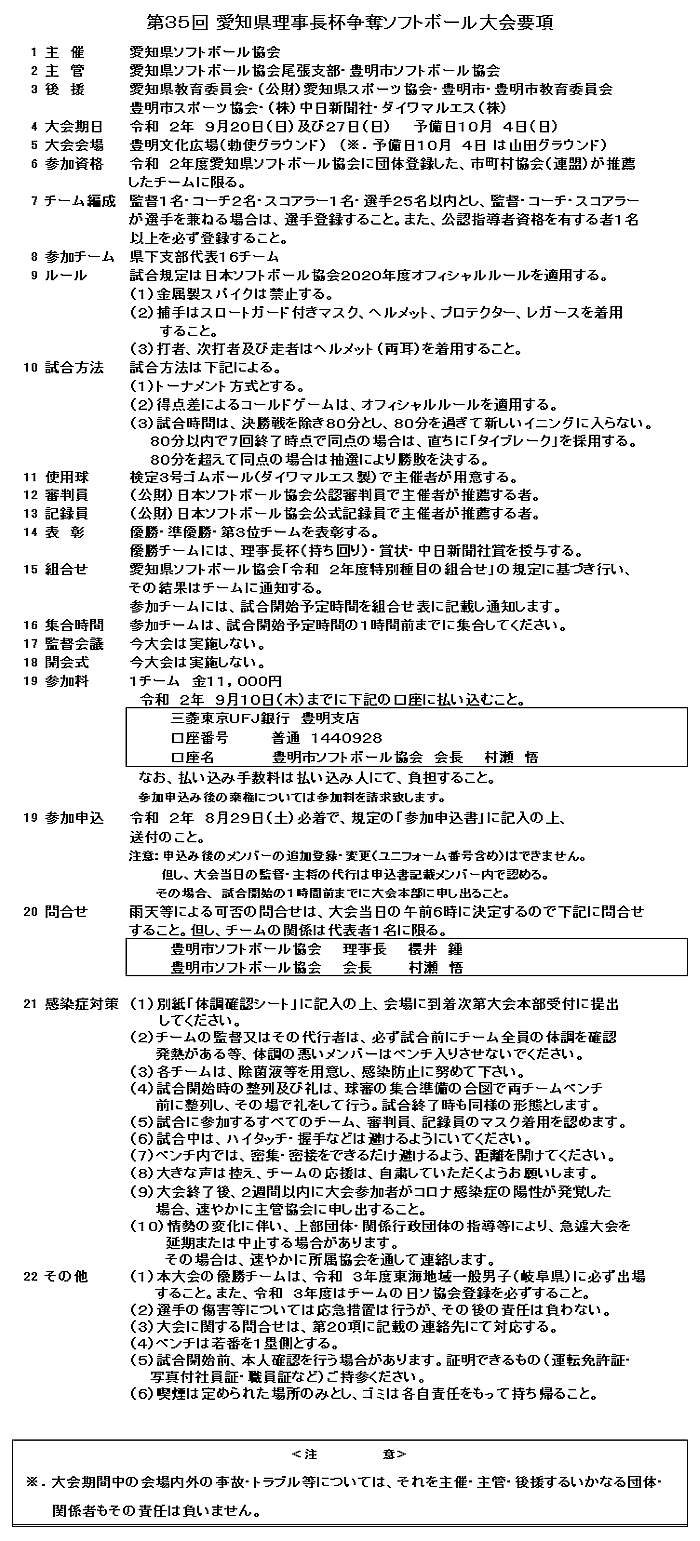 第35回 愛知県理事長杯争奪ソフトボール大会要項
1 主　催　愛知県ソフトボール協会
2 主　管　愛知県ソフトボール協会尾張支部・豊明市ソフトボール協会
3 後　援　愛知県教育委員会・(公財)愛知県スポーツ協会・豊明市・豊明市教育委員会
豊明市スポーツ協会・(株)中日新聞社・ダイワマルエス(株)
4 大会期日　令和　2年　9月20日(日)及び27日(日)　　予備日10月　4日(日)
5 大会会場　豊明文化広場(勅使グラウンド)　(※．予備日10月　4日 は山田グラウンド)
6 参加資格　令和　2年度愛知県ソフトボール協会に団体登録した、市町村協会(連盟)が推薦
したチームに限る。
7 チーム編成　監督1名・コーチ2名・スコアラー1名・選手25名以内とし、監督・コーチ・スコアラー
が選手を兼ねる場合は、選手登録すること。また、公認指導者資格を有する者1名
以上を必ず登録すること。
8 参加チーム　県下支部代表16チーム
9 ルール　試合規定は日本ソフトボール協会2020年度オフィシャルルールを適用する。
(1)金属製スパイクは禁止する。
(2)捕手はスロートガード付きマスク、ヘルメット、プロテクター、レガースを着用
すること。
(3)打者、次打者及び走者はヘルメット(両耳)を着用すること。
10 試合方法　試合方法は下記による。
(1)トーナメント方式とする。
(2)得点差によるコールドゲームは、オフィシャルルールを適用する。
(3)試合時間は、決勝戦を除き80分とし、80分を過ぎて新しいイニングに入らない。
80分以内で7回終了時点で同点の場合は、直ちに「タイブレーク」を採用する。
80分を超えて同点の場合は抽選により勝敗を決する。
11 使用球　検定3号ゴムボール(ダイワマルエス製)で主催者が用意する。
12 審判員　(公財)日本ソフトボール協会公認審判員で主催者が推薦する者。
13 記録員　(公財)日本ソフトボール協会公式記録員で主催者が推薦する者。
14 表　彰　優勝・準優勝・第3位チームを表彰する。
優勝チームには、理事長杯(持ち回り)・賞状・中日新聞社賞を授与する。
15 組合せ　愛知県ソフトボール協会「令和　2年度特別種目の組合せ」の規定に基づき行い、
その結果はチームに通知する。
参加チームには、試合開始予定時間を組合せ表に記載し通知します。
16 集合時間　参加チームは、試合開始予定時間の1時間前までに集合してください。
17 監督会議　今大会は実施しない。
18 開会式　今大会は実施しない。
19 参加料　1チーム　金11，000円
令和　2年　9月10日(木)までに下記の口座に払い込むこと。
三菱東京UFJ銀行　豊明支店
口座番号　　　普通　1440928
口座名　　　　豊明市ソフトボール協会　会長　村瀬　悟
なお、払い込み手数料は払い込み人にて、負担すること。
参加申込み後の棄権については参加料を請求致します。
19 参加申込　令和　2年　8月29日(土)必着で、規定の「参加申込書」に記入の上、
送付のこと。
注意：申込み後のメンバーの追加登録・変更(ユニフォーム番号含め)はできません。
但し、大会当日の監督・主将の代行は申込書記載メンバー内で認める。
その場合、試合開始の1時間前までに大会本部に申し出ること。
20 問合せ　雨天等による可否の問合せは、大会当日の午前6時に決定するので下記に問合せ
すること。但し、チームの関係は代表者1名に限る。
豊明市ソフトボール協会　理事長　櫻井　鍾
豊明市ソフトボール協会　会長　　村瀬　悟
21 感染症対策　(1)別紙「体調確認シート」に記入の上、会場に到着次第大会本部受付に提出
してください。
(2)チームの監督又はその代行者は、必ず試合前にチーム全員の体調を確認
発熱がある等、体調の悪いメンバーはベンチ入りさせないでください。
(3)各チームは、除菌液等を用意し、感染防止に努めて下さい。
(4)試合開始時の整列及び礼は、球審の集合準備の合図で両チームベンチ
前に整列し、その場で礼をして行う。試合終了時も同様の形態とします。
(5)試合に参加するすべてのチーム、審判員、記録員のマスク着用を認めます。
(6)試合中は、ハイタッチ・握手などは避けるようにいてください。
(7)ベンチ内では、密集・密接をできるだけ避けるよう、距離を開けてください。
(8)大きな声は控え、チームの応援は、自粛していただくようお願いします。
(9)大会終了後、2週間以内に大会参加者がコロナ感染症の陽性が発覚した
場合、速やかに主管協会に申し出すること。
(10)情勢の変化に伴い、上部団体・関係行政団体の指導等により、急遽大会を
延期または中止する場合があります。
その場合は、速やかに所属協会を通して連絡します。
22 その他　(1)本大会の優勝チームは、令和　3年度東海地域一般男子(岐阜県)に必ず出場
すること。また、令和　3年度はチームの日ソ協会登録を必ずすること。
(2)選手の傷害等については応急措置は行うが、その後の責任は負わない。
(3)大会に関する問合せは、第20項に記載の連絡先にて対応する。
(4)ベンチは若番を1塁側とする。
(5)試合開始前、本人確認を行う場合があります。証明できるもの(運転免許証・
写真付社員証・職員証など)ご持参ください。
(6)喫煙は定められた場所のみとし、ゴミは各自責任をもって持ち帰ること。
＜注　　　　意＞
※．大会期間中の会場内外の事故・トラブル等については、それを主催・主管・後援するいかなる団体・
関係者もその責任は負いません。